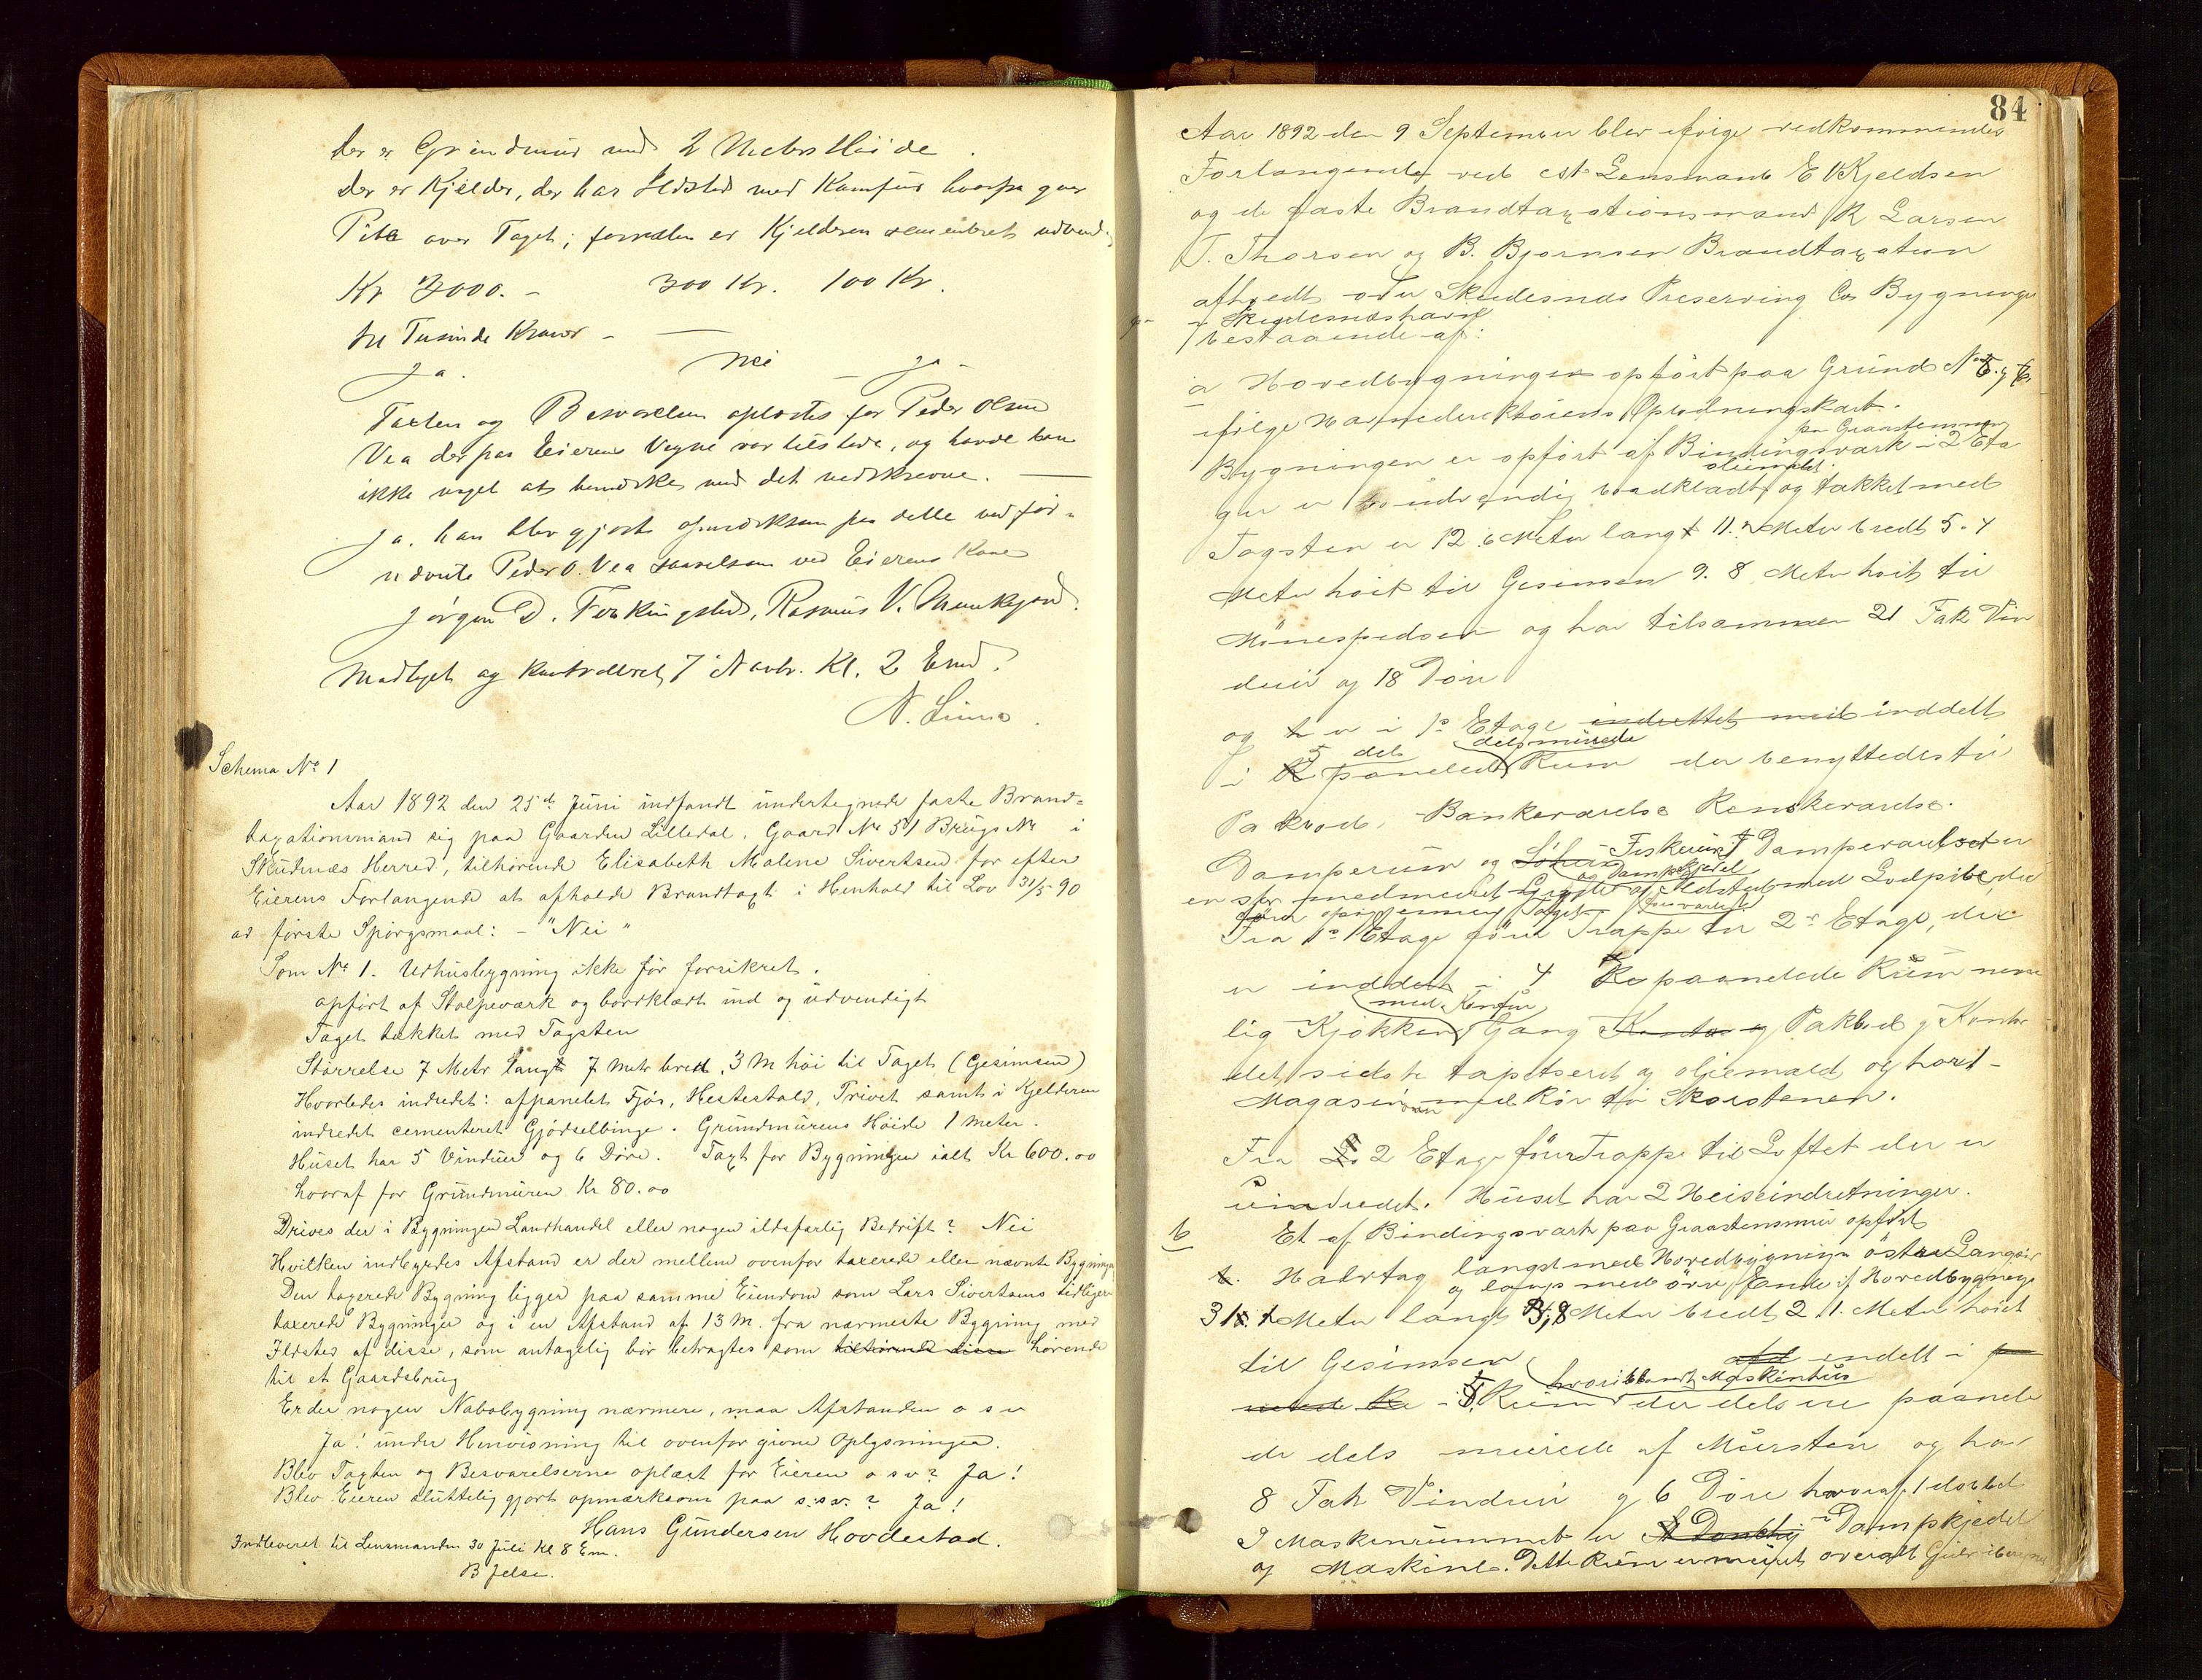 der er Grundmur med 2 Meters Høide.
der er Kjelder, der har Ildsted med Kamfur hvorfra gaar
Pibe over Taget; forresten er Kjelderen cementeret udvendig
Kr 3000.- 300 Kr. 100 Kr.
tre Tusinde Kroner -
Ja. Nei - Ja -
Taxten og Besvarelsen oplæstes for Peder Olsen
Vea der paa Eierens Vegne var tilstede, og havde han
ikke noget at bemærke med det nedskrevne.
Ja. han blev gjort opmærksom paa dette ved før-
nævnte Peder O. Vea saavelsom ved Eierens Kone
Jørgen D. Ferkingstad, Rasmus V. Munkejord.
Modtaget og kontrolleret 7 Novbr. Kl. 2 Emd.
Schema No 1
Aar 1892 den 25de Juni indfandt undertegnede faste Brand-
taxationsmænd sig paa Gaarden Lilledal. Gaard No 51 Brugs No i
Skudenæs Herred, tilhørende Elisabeth Malene Sivertsen for efter
Eierens Forlangende at afholde Brandtaxt i Henhold til Lov 31/5 90
ad første Spørgsmaal: - "Nei"
Som No 1. Udhusbygning ikke før forsikret.
opført af Stolpeværk og bordklædt ind og udvendigt
Taget tækket med Tagsten
Størrelse 7 Metr langt 7 Metr bred, 3 M høi til Taget (Gesimsen)
Hvorledes indredet: afpanelet Fjøs, Hestestald, Privet samt i Kjelderen
indredet cementeret Gjødselbinge. Grundmurens Høide 1 meter.
Huset har 5 Vinduer og 6 Døre. Taxt for Bygningen ialt Kr 600.00
hvoraf for Grundmuren Kr 80.00
Drives der i Bygningen Landhandel eller nogen ildsfarlig Bedrift? Nei
Hvilken indbyrdes Afstand er der mellem ovenfor taxerede eller nævnte Bygninger
Den taxerede Bygning ligger paa samme Eiendom som Lars Sivertsens tidligere
taxerede Bygninger og i en Afstand af 13 M. fra nærmeste Bygning med
Ildsted af disse, som antagelig bør betragtes som tilhørende disse hørende
til et Gaardsbrug
Er der nogen Nabobygning nærmere, maa Afstanden o s v
Ja! under Henvisning til ovenfor givne Oplysninger.
Blev Taxten og Besvarelserne oplæst for Eieren o s v? Ja!
Blev Eieren sluttelig gjort opmærksom paa o.s.v.? Ja!
Hans Gundersen Hovdestad.
Indleveret til Lensmanden 30 Juli Kl 8 Em.
84
Aar 1892 den 9 September blev ifølge vedkommendes
Forlangende ved cst. Lensmand E Kjeldsen
og de faste Brandtaxationsmænd R Larsen
T. Thorsen og B. Bjørnsen Brandtaxation
afholdt over Skudesnæs Preserving Cos Bygninger
i Skudesnæshavn
bestaaende af:
a Hovedbygningen opført paa Grund No 5. og 6.
ifølge Havnedirektørens Opmålningskart.
paa Graastensmur
Bygningen er opført af Bindingsværk i 2 Eta
oliemalet
ger er udvendig bordklædt og tækket med
Tagsten er 12.6 Meter langt 11.2 Meter bredt 5.4
Meter høit til Gesimsen 9.8 Meter høit til
Mønespidsen og har tilsammen 21 Fak Vin
duer og 18 Døre
og er i 1ste Etage indrettet med inddelt
5 dels dels murede
i panelede Rum der benyttedes til
Pakbod, Bankeværelse Renskeværelse.
Damperum og Fiskerum Dampeværelset er
og Dampkjedel
en stor medmuret Gryde af Ildsted med Lodpibe, der
fører op gjennem Taget
Fra 1ste Etage fører Trappe til 2den Etage, der
er inddelt i 4 paanelede Rum nem
med Komfur
lig Kjøkken Gang Kontor og Pakbod og Kontor
det sidste tapetseret og oliemalet og har et
Magasin med Rør til Skorstenen.
Fra 2 Etage fører Trappe til Loftet der er
uindredet. Huset har 2 Heiseindretninger.
b Et af Bindingsværk paa Graastensmur opført
Halvtag langs med Hovedbygningens østre Langside
og langs med øvre Ende af Hovedbygningen
31.1 Meter langt 3,8 Meter bredt 2.1. Meter høiet
til Gesimsen indelt i
hvoriblandt Maskinhus
5 Rum der dels ere paanele
de dels murede af Mursten og har
8 Fak Vinduer og 6 Døre hvoraf 1 dobbelt
I Maskinrummet er Dampkjedel
og Maskine. Dette Rum er muret overalt